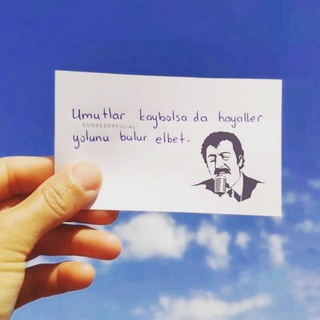 Umutlar kaybolsa da hayaller
GURSES OFFICIAL
yolunu bulur elbet.